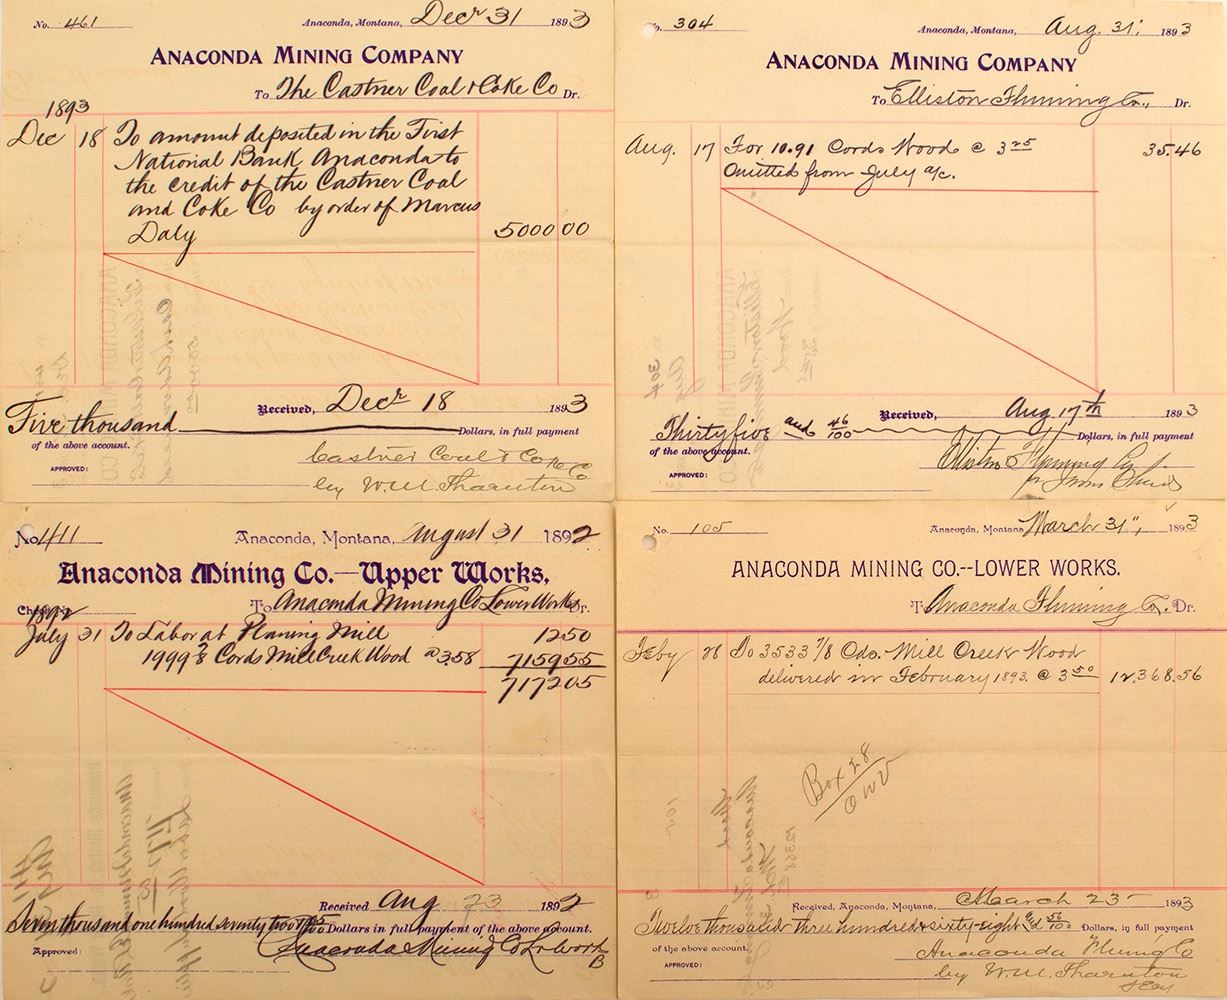 No. 461 Anaconda, Montana, Decr 31 1893
ANACONDA MINING COMPANY
To The Castner Coal & Coke Co Dr.
1893
Dec 18 To amount deposited in the First
National Bank Anaconda to
the credit of the Castner Coal
and Coke Co by order of Marcus
Daly 5000 00
Received, Decr 18 1893
Five thousand Dollars, in full payment
of the above account.
Castner Coal & Coke Co
APPROVED:
by W.M. Thornton
No. 304 Anaconda, Montana, Aug. 31, 1893
ANACONDA MINING COMPANY
To Elliston Fluming Co., Dr.
Aug. 17 For 10.91 Cords Wood @ 3 25 35.46
Omitted from July a/c.
Received, Aug. 17th 1893
Thirty five and 46/100 Dollars, in full payment
of the above account.
Elliston Fluming Co
APPROVED:
No. 1411 Anaconda, Montana, August 31 1892
Anaconda Mining Co.—Upper Works,
To Anaconda Mining Co Lower Works Dr.
1892
July 31 To Labor at Planing Mill 12 50
1999 7/8 Cords Mill Creek Wood @ 3.58 7159 55
7172 05
Received Aug 23 1892
Seven thousand one hundred seventy two 05/100 Dollars in full payment of the above account.
Approved: Anaconda Mining Co Lr Works
B
No. 105 Anaconda, Montana, March 31", 1893
ANACONDA MINING CO.--LOWER WORKS.
To Anaconda Fluming Co., Dr.
Feby 28 To 3533 7/8 Cds. Mill Creek Wood
delivered in February 1893. @ 3 50 12,368.56
Box 28
OWV
Received, Anaconda, Montana, March 23 1893
Twelve thousand three hundred & sixty-eight & 56/100 Dollars, in full payment
of the above account.
Anaconda Flum'g Co
APPROVED:
by W.M. Thornton